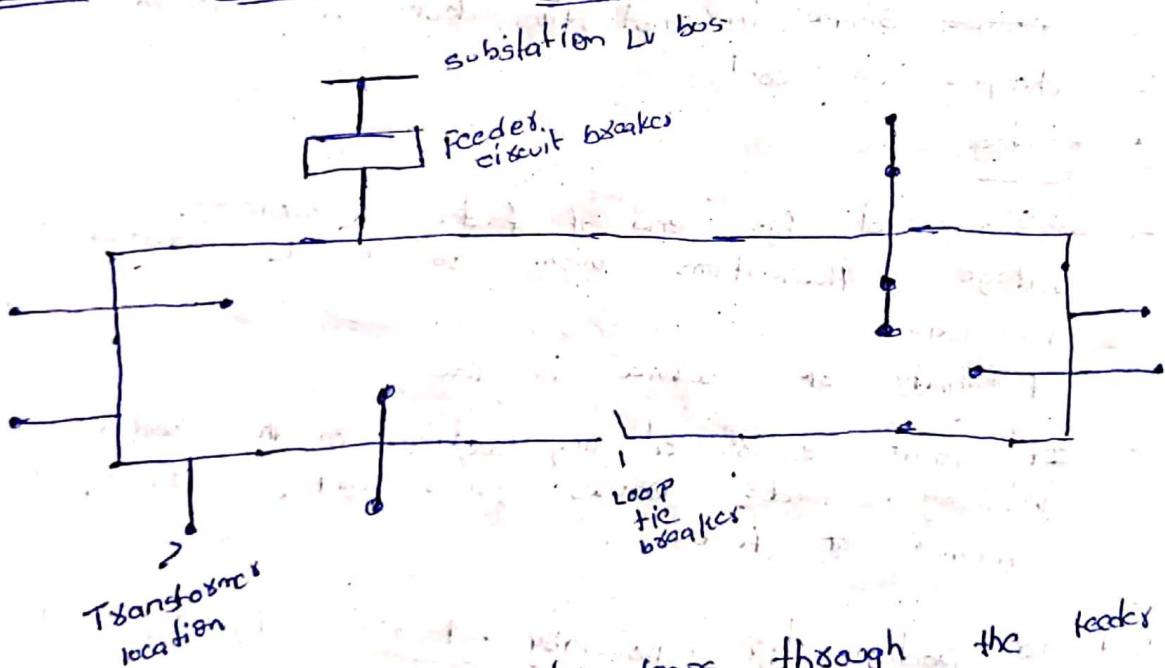 substation LV bus
Feeder
circuit breaker
Loop
tie
breaker
Transformer
location
through the feeder